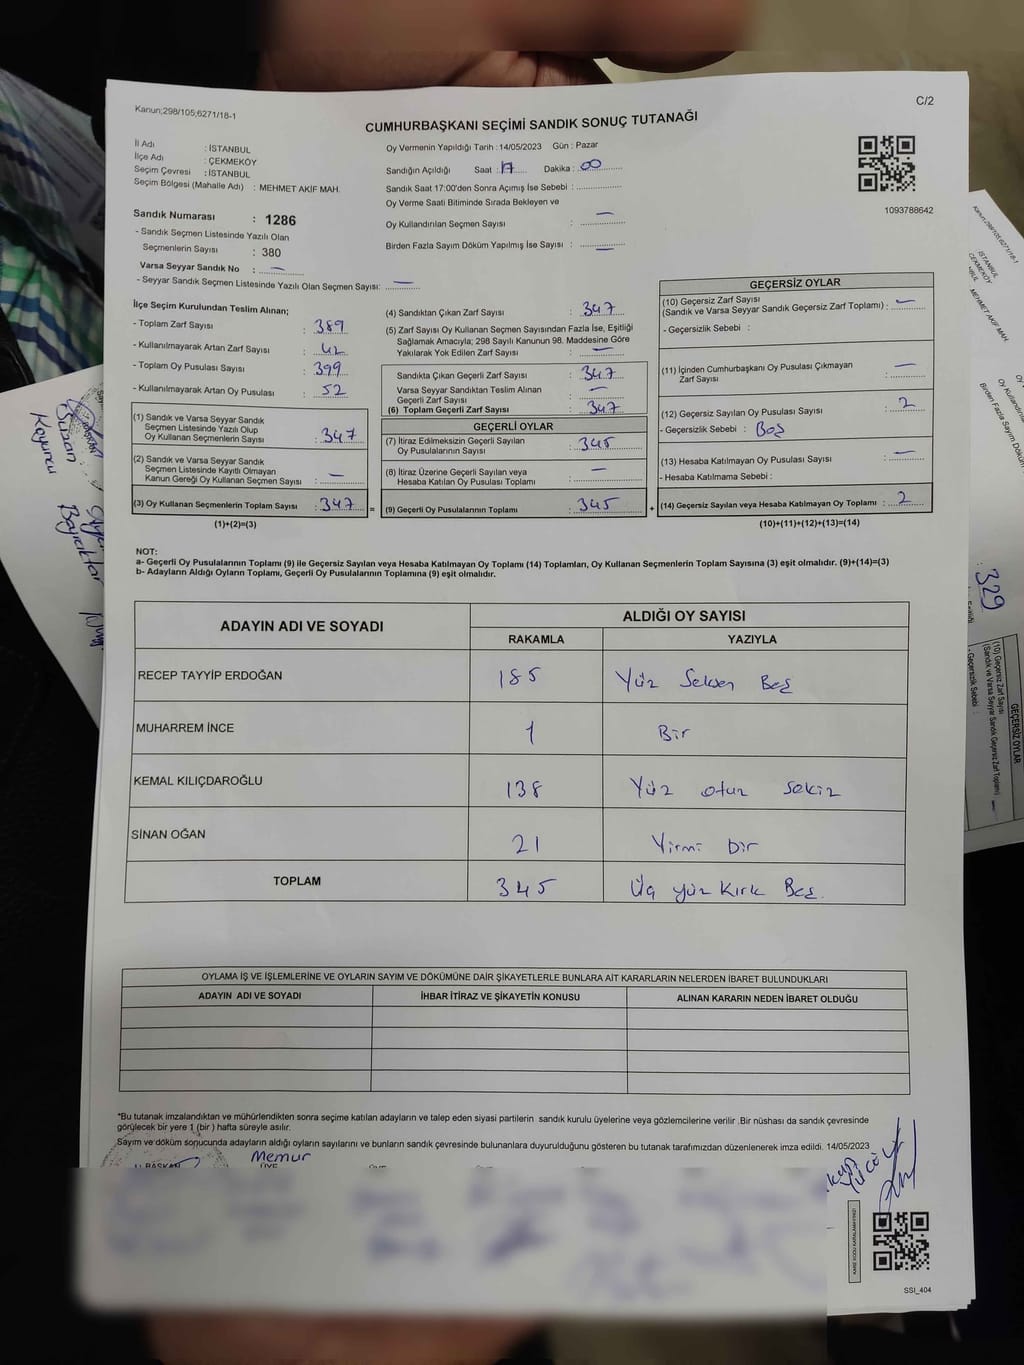 Kanun;298/105;6271/18-1
C/2
CUMHURBAŞKANI SEÇİMİ SANDIK SONUÇ TUTANAĞI
İl Adı : İSTANBUL
İlçe Adı : ÇEKMEKÖY
Seçim Çevresi : İSTANBUL
Seçim Bölgesi (Mahalle Adı) : MEHMET AKİF MAH.
Sandık Numarası : 1286
- Sandık Seçmen Listesinde Yazılı Olan
Seçmenlerin Sayısı : 380
Varsa Seyyar Sandık No : —
- Seyyar Sandık Seçmen Listesinde Yazılı Olan Seçmen Sayısı: —
Oy Vermenin Yapıldığı Tarih : 14/05/2023 Gün : Pazar
Sandığın Açıldığı Saat : 17 Dakika : 00
Sandık Saat 17:00'den Sonra Açımış İse Sebebi :
Oy Verme Saati Bitiminde Sırada Bekleyen ve
Oy Kullandırılan Seçmen Sayısı : —
Birden Fazla Sayım Döküm Yapılmış İse Sayısı : —
1093788642
İlçe Seçim Kurulundan Teslim Alınan;
- Toplam Zarf Sayısı : 389
- Kullanılmayarak Artan Zarf Sayısı : 42
- Toplam Oy Pusulası Sayısı : 399
- Kullanılmayarak Artan Oy Pusulası : 52
(1) Sandık ve Varsa Seyyar Sandık
Seçmen Listesinde Yazılı Olup
Oy Kullanan Seçmenlerin Sayısı : 347
(2) Sandık ve Varsa Seyyar Sandık
Seçmen Listesinde Kayıtlı Olmayan
Kanun Gereği Oy Kullanan Seçmen Sayısı : —
(3) Oy Kullanan Seçmenlerin Toplam Sayısı : 347 =
(1)+(2)=(3)
(4) Sandıktan Çıkan Zarf Sayısı : 347
(5) Zarf Sayısı Oy Kullanan Seçmen Sayısından Fazla İse, Eşitliği
Sağlamak Amacıyla; 298 Sayılı Kanunun 98. Maddesine Göre
Yakılarak Yok Edilen Zarf Sayısı : —
Sandıkta Çıkan Geçerli Zarf Sayısı : 347
Varsa Seyyar Sandıktan Teslim Alınan
Geçerli Zarf Sayısı : —
(6) Toplam Geçerli Zarf Sayısı : 347
GEÇERLİ OYLAR
(7) İtiraz Edilmeksizin Geçerli Sayılan
Oy Pusulalarının Sayısı : 345
(8) İtiraz Üzerine Geçerli Sayılan veya
Hesaba Katılan Oy Pusulası Toplamı : —
(9) Geçerli Oy Pusulalarının Toplamı : 345 +
GEÇERSİZ OYLAR
(10) Geçersiz Zarf Sayısı
(Sandık ve Varsa Seyyar Sandık Geçersiz Zarf Toplamı) : —
- Geçersizlik Sebebi :
(11) İçinden Cumhurbaşkanı Oy Pusulası Çıkmayan
Zarf Sayısı : —
(12) Geçersiz Sayılan Oy Pusulası Sayısı : 2
- Geçersizlik Sebebi : Boş
(13) Hesaba Katılmayan Oy Pusulası Sayısı : —
- Hesaba Katılmama Sebebi :
(14) Geçersiz Sayılan veya Hesaba Katılmayan Oy Toplamı : 2
(10)+(11)+(12)+(13)=(14)
NOT:
a- Geçerli Oy Pusulalarının Toplamı (9) ile Geçersiz Sayılan veya Hesaba Katılmayan Oy Toplamı (14) Toplamları, Oy Kullanan Seçmenlerin Toplam Sayısına (3) eşit olmalıdır. (9)+(14)=(3)
b- Adayların Aldığı Oyların Toplamı, Geçerli Oy Pusulalarının Toplamına (9) eşit olmalıdır.
ADAYIN ADI VE SOYADI
ALDIĞI OY SAYISI
RAKAMLA YAZIYLA
RECEP TAYYİP ERDOĞAN 185 Yüz Seksen Beş
MUHARREM İNCE 1 Bir
KEMAL KILIÇDAROĞLU 138 Yüz otuz sekiz
SİNAN OĞAN 21 Yirmi bir
TOPLAM 345 Üç yüz Kırk Beş
OYLAMA İŞ VE İŞLEMLERİNE VE OYLARIN SAYIM VE DÖKÜMÜNE DAİR ŞİKAYETLERLE BUNLARA AİT KARARLARIN NELERDEN İBARET BULUNDUKLARI
ADAYIN ADI VE SOYADI İHBAR İTİRAZ VE ŞİKAYETİN KONUSU ALINAN KARARIN NEDEN İBARET OLDUĞU
*Bu tutanak imzalandıktan ve mühürlendikten sonra seçime katılan adayların ve talep eden siyasi partilerin sandık kurulu üyelerine veya gözlemcilerine verilir .Bir nüshası da sandık çevresinde
görülecek bir yere 1 (bir ) hafta süreyle asılır.
Sayım ve döküm sonucunda adayların aldığı oyların sayılarını ve bunların sandık çevresinde bulunanlara duyurulduğunu gösteren bu tutanak tarafımızdan düzenlenerek imza edildi. 14/05/2023
BAŞKAN
Memur
ÜYE
SSI_404
Kanun;298/105;6271/18-1
İSTANBUL
ÇEKMEKÖY
MEHMET AKİF MAH.
329
GEÇERSİZ OYLAR
(10) Geçersiz Zarf Sayısı
(Sandık ve Varsa Seyyar Sandık Geçersiz Zarf Toplamı)
- Geçersizlik Sebebi :